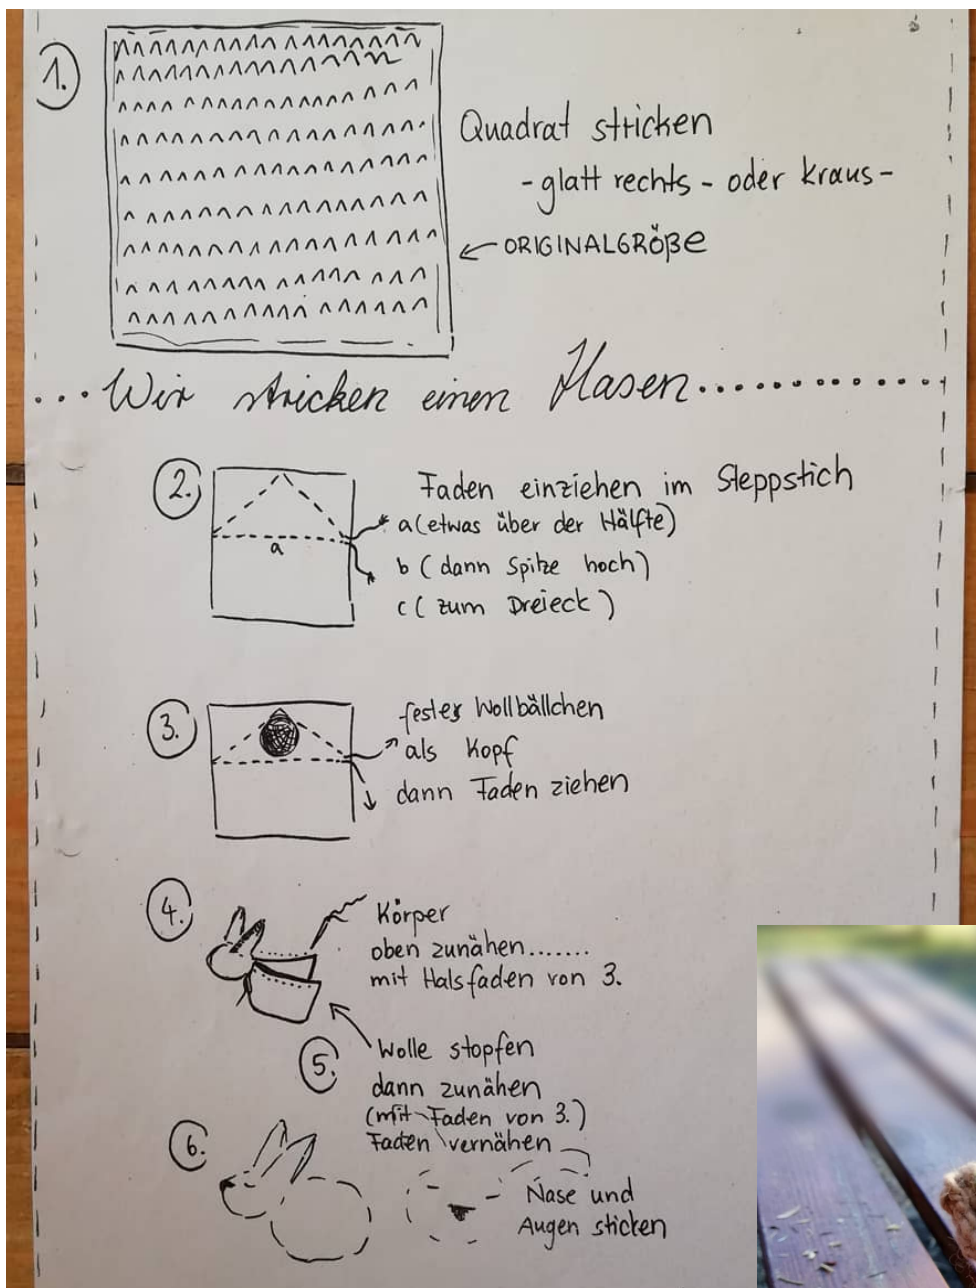 1.
Quadrat stricken
- glatt rechts - oder kraus -
← ORIGINALGRÖßE
... Wir stricken einen Hasen ...............
2.
Faden einziehen im Steppstich
a (etwas über der Hälfte)
a
b (dann Spitze hoch)
c (zum Dreieck)
3.
festes Wollbällchen
als Kopf
dann Faden ziehen
4.
Körper
oben zunähen.......
mit Halsfaden von 3.
5.
Wolle stopfen
dann zunähen
(mit Faden von 3.)
Faden vernähen
6.
Nase und
Augen sticken